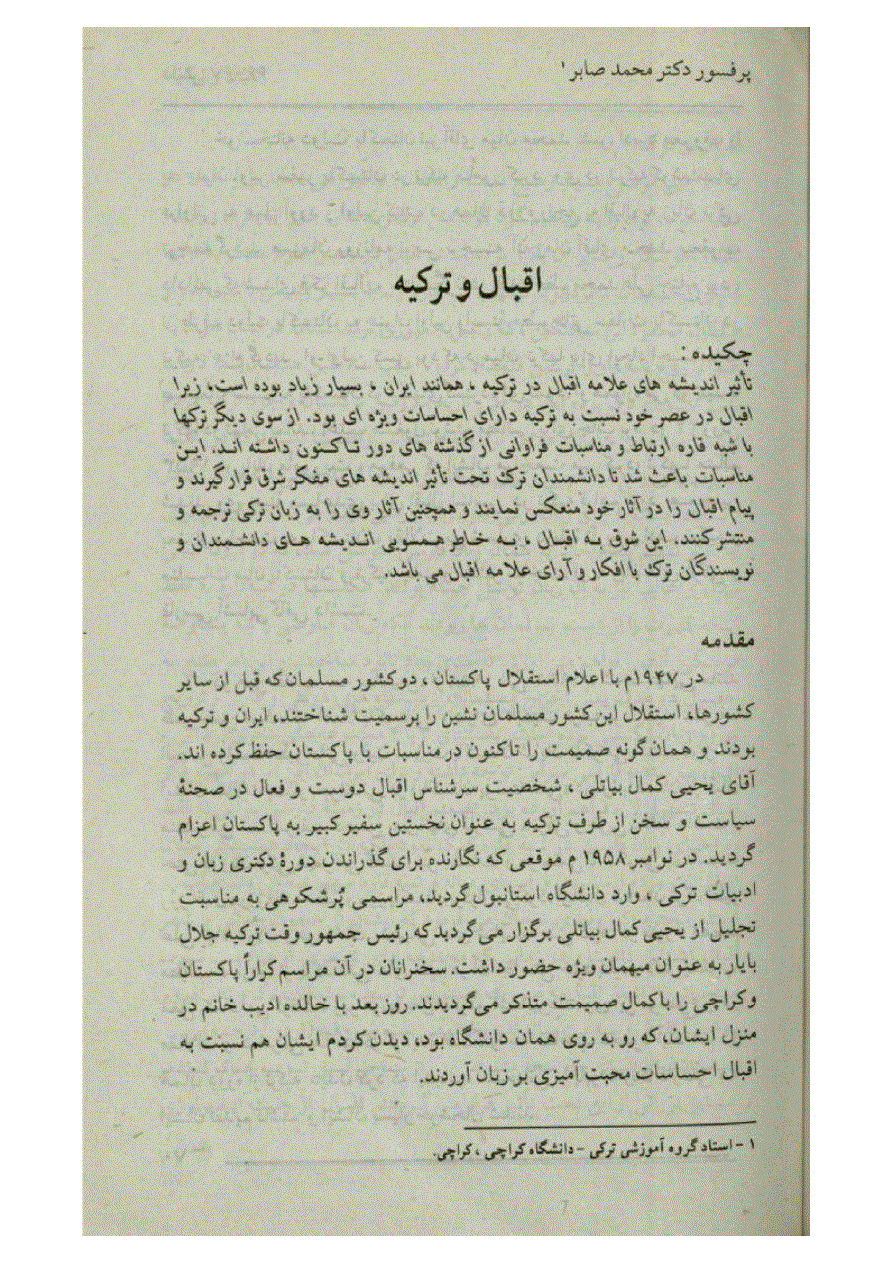 پرفسور دکتر محمد صابر ۱
اقبال و ترکیه
چکیده :
تأثیر اندیشه های علامه اقبال در ترکیه ، همانند ایران ، بسیار زیاد بوده است، زیرا
اقبال در عصر خود نسبت به ترکیه دارای احساسات ویژه ای بود. از سوی دیگر ترکها
با شبه قاره ارتباط و مناسبات فراوانی از گذشته های دور تاکنون داشته اند. این
مناسبات باعث شد تا دانشمندان ترک تحت تأثیر اندیشه های مفکر شرق قرار گیرند و
پیام اقبال را در آثار خود منعکس نمایند و همچنین آثار وی را به زبان ترکی ترجمه و
منتشر کنند. این شوق به اقبال ، به خاطر همسویی اندیشه های دانشمندان و
نویسندگان ترک با افکار و آرای علامه اقبال می باشد.
مقدمه
در ۱۹۴۷م با اعلام استقلال پاکستان ، دو کشور مسلمان که قبل از سایر
کشورها، استقلال این کشور مسلمان نشین را برسمیت شناختند، ایران و ترکیه
بودند و همان گونه صمیمت را تاکنون در مناسبات با پاکستان حفظ کرده اند.
آقای یحیی کمال بیاتلی ، شخصیت سرشناس اقبال دوست و فعال در صحنهٔ
سیاست و سخن از طرف ترکیه به عنوان نخستین سفیر کبیر به پاکستان اعزام
گردید. در نوامبر ۱۹۵۸ م موقعی که نگارنده برای گذراندن دورهٔ دکتری زبان و
ادبیات ترکی ، وارد دانشگاه استانبول گردید، مراسمی پُرشکوهی به مناسبت
تجلیل از یحیی کمال بیاتلی برگزار می گردید که رئیس جمهور وقت ترکیه جلال
بایار به عنوان میهمان ویژه حضور داشت. سخنرانان در آن مراسم کراراً پاکستان
و کراچی را با کمال صمیمت متذکر می گردیدند. روز بعد با خالده ادیب خانم در
منزل ایشان، که رو به روی همان دانشگاه بود، دیدن کردم ایشان هم نسبت به
اقبال احساسات محبت آمیزی بر زبان آوردند.
۱ - استاد گروه آموزشی ترکی - دانشگاه کراچی ، کراچی.